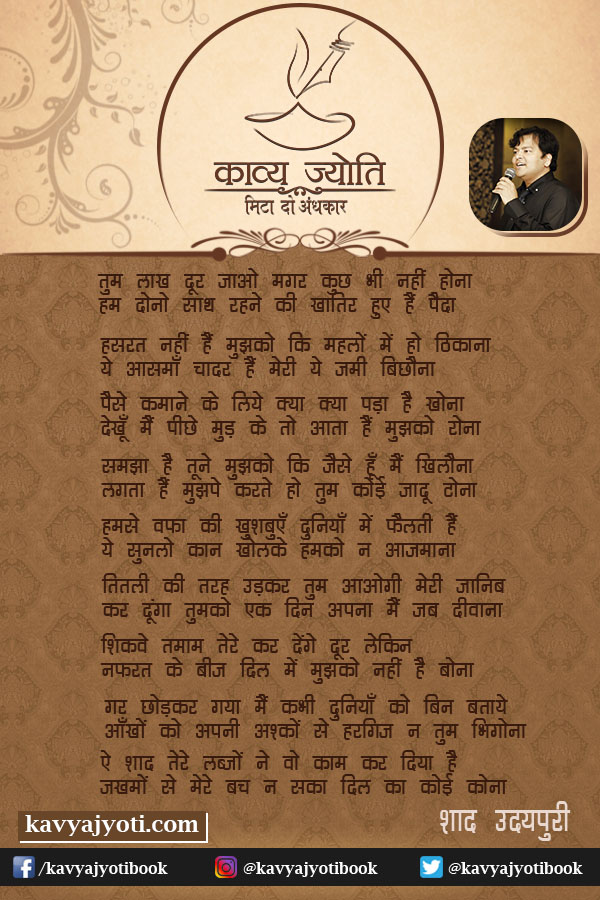 काव्य ज्योति
मिटा दो अंधकार
तुम लाख दूर जाओ मगर कुछ भी नहीं होना
हम दोनो साथ रहने की खातिर हुए हैं पैदा
हसरत नहीं हैं मुझको कि महलों में हो ठिकाना
ये आसमाँ चादर हैं मेरी ये जमी बिछौना
पैसे कमाने के लिये क्या क्या पड़ा है खोना
देखूँ मैं पीछे मुड़ के तो आता हैं मुझको रोना
समझा है तूने मुझको कि जैसे हूँ मैं खिलौना
लगता हैं मुझपे करते हो तुम कोई जादू टोना
हमसे वफा की खुशबुएँ दुनियाँ में फैलती हैं
ये सुनलो कान खोलके हमको न आजमाना
तितली की तरह उड़कर तुम आओगी मेरी जानिब
कर दूंगा तुमको एक दिन अपना मैं जब दीवाना
शिकवे तमाम तेरे कर देंगे दूर लेकिन
नफरत के बीज दिल में मुझको नहीं है बोना
गर छोड़कर गया मैं कभी दुनियाँ को बिन बताये
आँखों को अपनी अश्कों से हरगिज न तुम भिगोना
ऐ शाद तेरे लब्जों ने वो काम कर दिया है
जखमों से मेरे बच न सका दिल का कोई कोना
शाद उदयपुरी
kavyajyoti.com
/kavyajyotibook
@kavyajyotibook
@kavyajyotibook